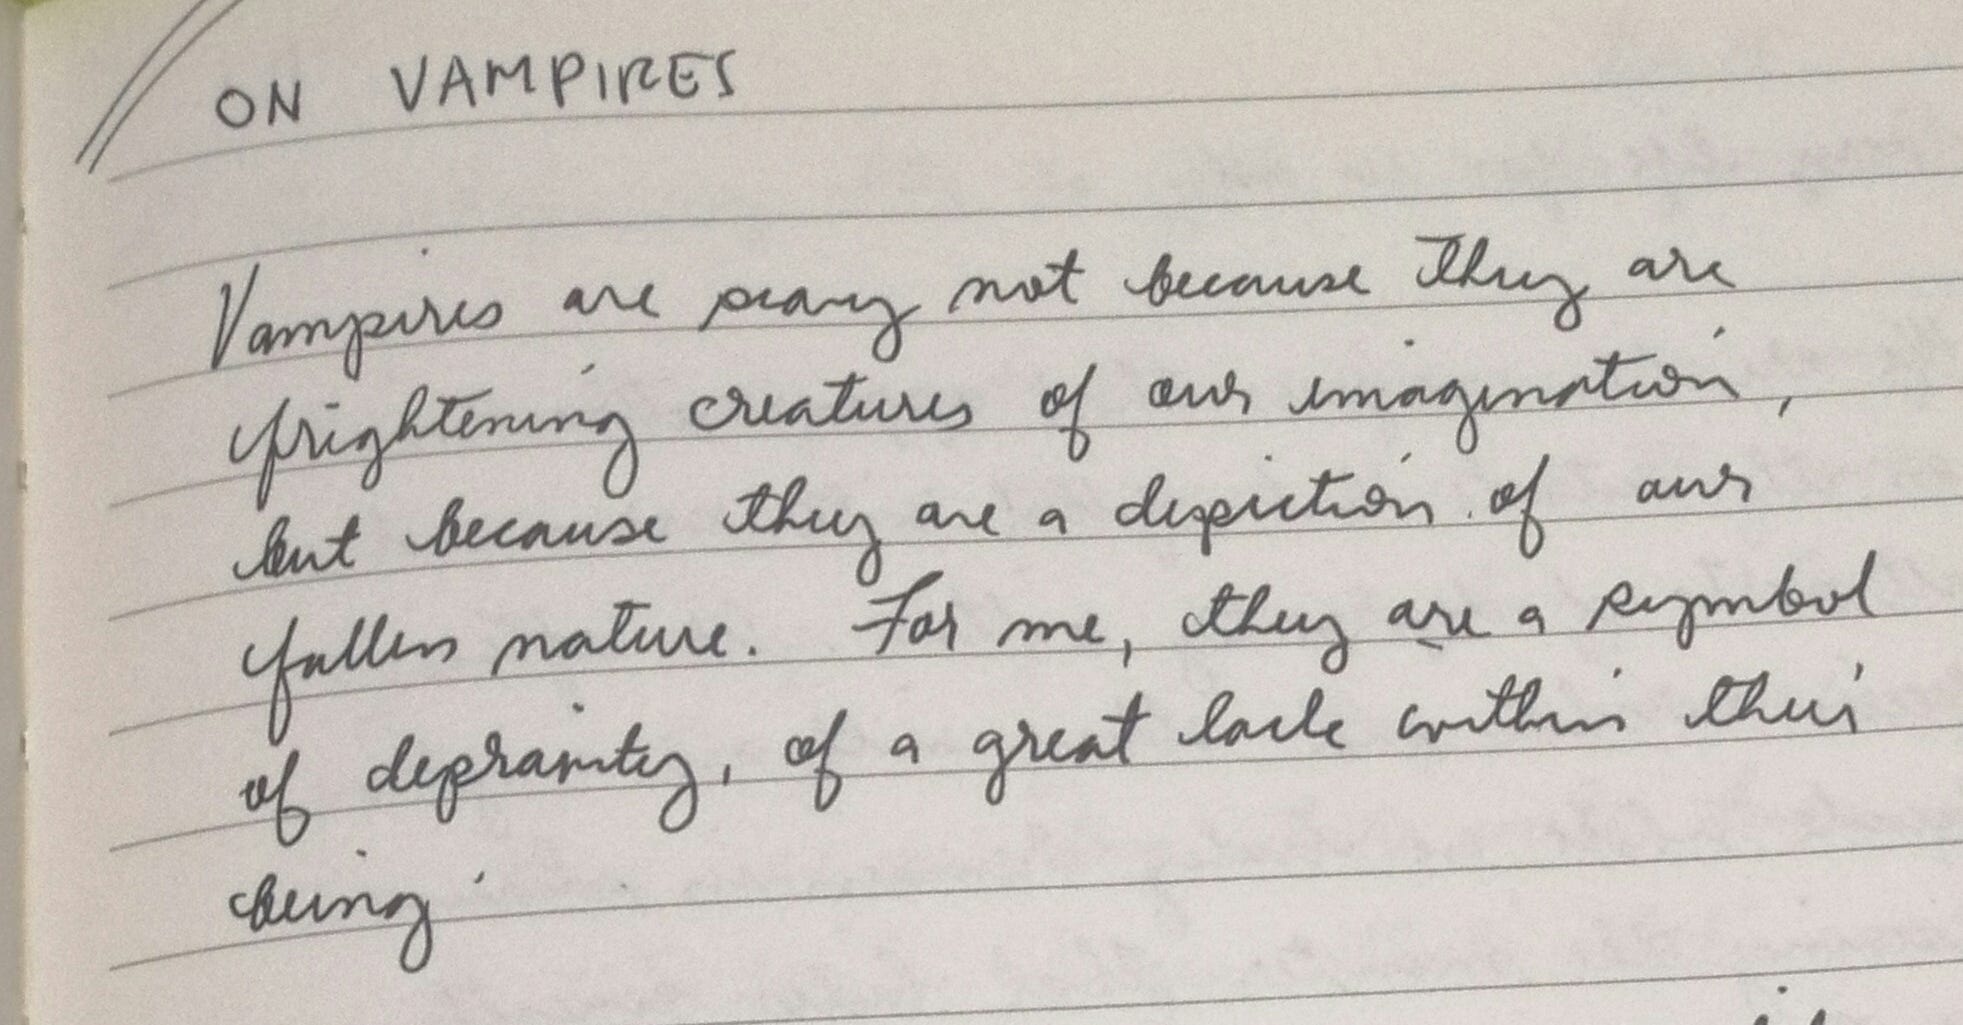 ON VAMPIRES
Vampires are scary not because they are
frightening creatures of our imagination,
but because they are a depiction of our
fallen nature. For me, they are a symbol
of depravity, of a great lack within their
being.